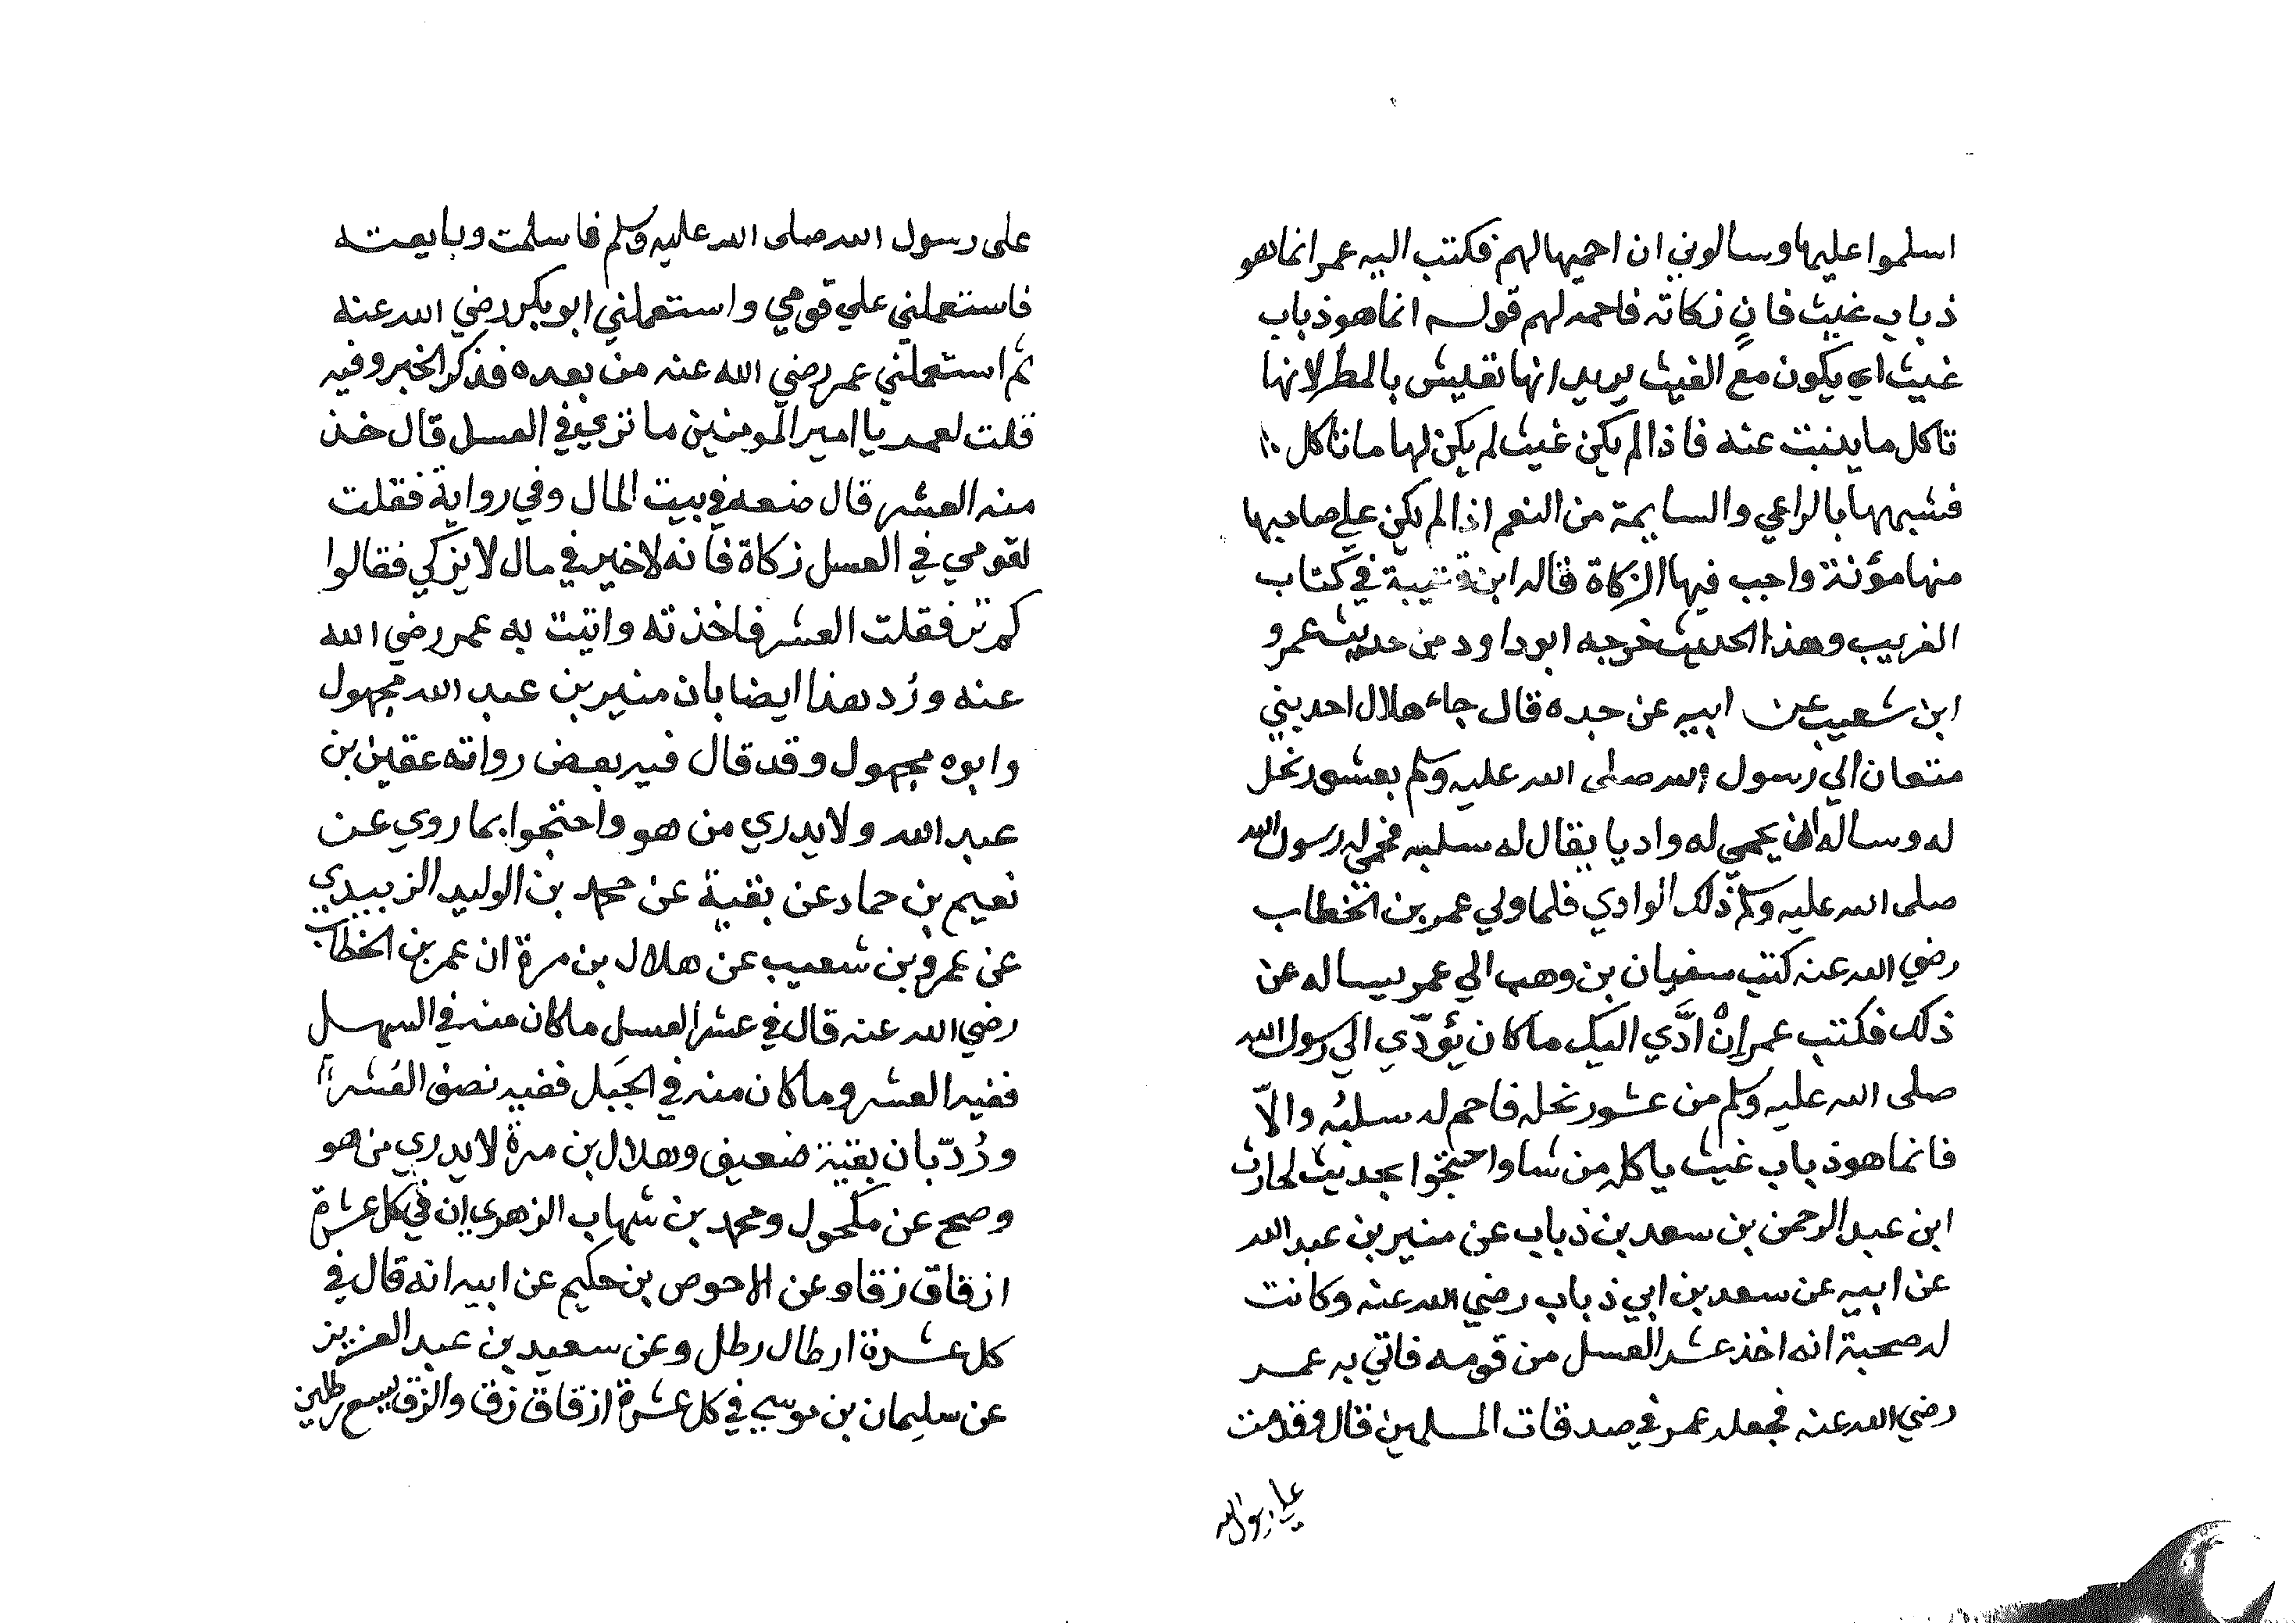 اسلموا عليها وسالوني ان احميها لهم فكتب اليه عمر انما هو
ذباب غيث فان زكاته فاحمه لهم قوله انما هو ذباب
غيث اي يكون مع الغيث يريد انها تعيش بالمطر لانها
تاكل ما ينبت عنه فاذا لم يكن غيث لم يكن لها ما تاكل
فشبهها بالراعي والسايمة من النعم اذا لم يكن علي صاحبها
منها مؤنة واجب فيها الزكاة قاله ابن قتيبة في كتاب
الغريب وهذا الحديث خرجه ابو داود من حديث عمرو
ابن شعيب عن ابيه عن جده قال جاء هلال احد بني
متعان الي رسول الله صلى الله عليه وسلم بعشور نحل
له وساله ان يحمي له واديا يقال له سلبه فحمي له رسول الله
صلى الله عليه وسلم ذلك الوادي فلما ولي عمر بن الخطاب
رضي الله عنه كتب سفيان بن وهب الي عمر يساله عن
ذلك فكتب عمر إنْ ادَّي اليك ما كان يؤدّي الي رسول الله
صلى الله عليه وسلم من عشور نحله فاحم له سلبُه والاّ
فانما هو ذباب غيث ياكله من شا واحتجوا بحديث لحارث
ابن عبد الرحمن بن سعد بن ذباب عن منير بن عبد الله
عن ابيه عن سعد بن ابي ذباب رضي الله عنه وكانت
له صحبة انه اخذ عشر العسل من قومه فاتي به عمر
رضي الله عنه فجعله عمر في صدقات المسلمين قال وقدمت
علي رسول الله
على رسول الله صلى الله عليه وسلم فاسلمت وبايعته
فاستعملني علي قومي واستعملني ابو بكر رضي الله عنه
ثم استعملني عمر رضي الله عنه من بعده فذكر الخبر وفيه
قلت لعمر يا امير المومنين ما تري في العسل قال خذ
منه العشر قال ضعه في بيت المال وفي رواية فقلت
لقومي في العسل زكاة فانه لا خير في مال لا يزكي فقالوا
كم تر فقلت العشر فاخذته واتيت به عمر رضي الله
عنه ورُد هذا ايضا بان منير بن عبد الله مجهول
وابوه مجهول وقد قال فيه بعض رواته عقين بن
عبد الله ولا يدري من هو واحتجوا بما روي عن
نعيم بن حماد عن بقية عن محمد بن الوليد الزبيدي
عن عمرو بن شعيب عن هلال بن مرة ان عمر بن الخطاب
رضي الله عنه قال في عشر العسل ما كان منه في السهل
ففيه العشر وما كان منه في الجَبل ففيه نصف العُشر
ورُدّ بان بقية ضعيف وهلال بن مرة لا يدري من هو
وصح عن مكحول ومحمد بن شهاب الزهري ان في كل عشرة
ازقاق زقا وعن الاحوص بن حكيم عن ابيه انه قال في
كل عشرة ارطال رطل وعن سعيد بن عبد العزيز
عن سليمان بن موسي في كل عشرة ازقاق زق والزق يسع رطلين